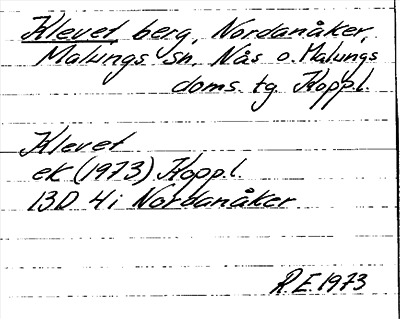 Klevet, berg, Nordanåker,
Malungs sn, Nås o. Malungs
doms. tg Kopp.l.
Klevet
ek (1973) Kopp.l.
13D 4i Nordanåker
R.E. 1973